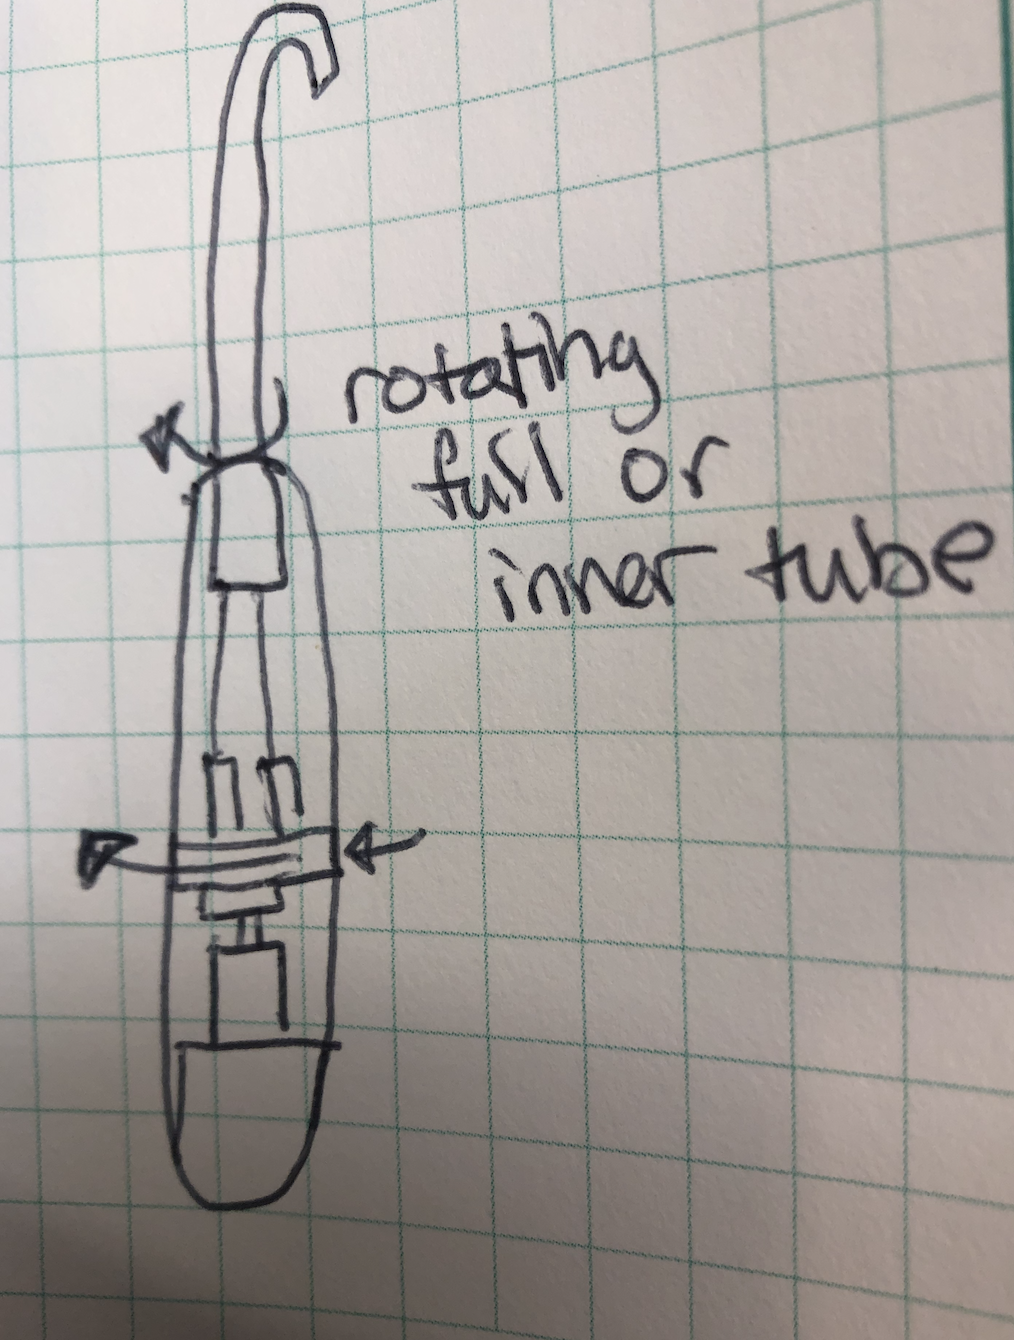 rotating
full or
inner tube